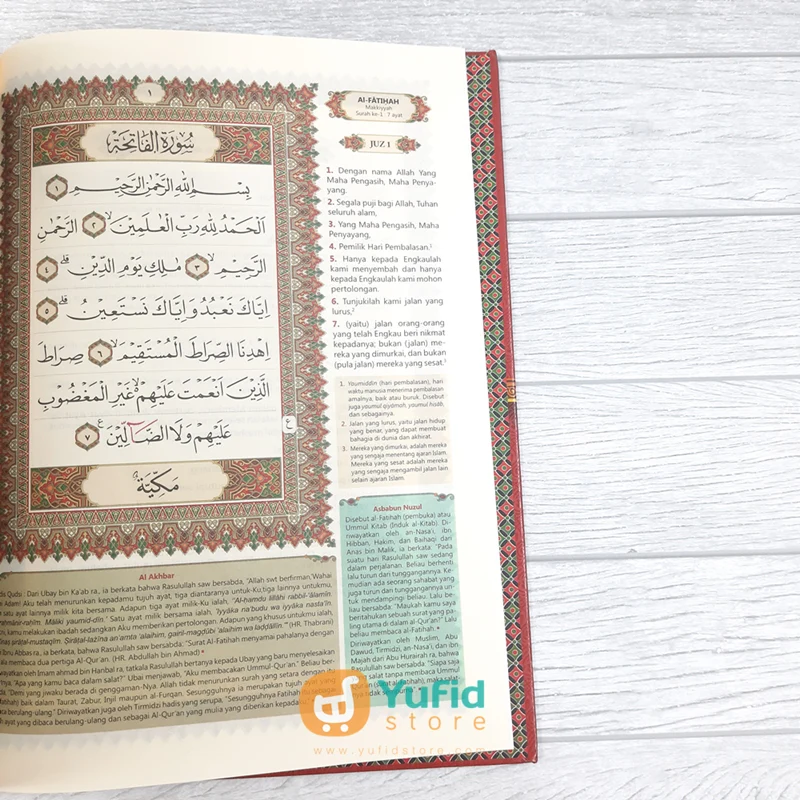 ١
سُورَةُ الفَاتِحَةِ
بِسْمِ اللّٰهِ الرَّحْمٰنِ الرَّحِيْمِ ١
اَلْحَمْدُ لِلّٰهِ رَبِّ الْعٰلَمِيْنَۙ ٢ الرَّحْمٰنِ
الرَّحِيْمِۙ ٣ مٰلِكِ يَوْمِ الدِّيْنِۗ ٤
اِيَّاكَ نَعْبُدُ وَاِيَّاكَ نَسْتَعِيْنُۗ ٥
اِهْدِنَا الصِّرَاطَ الْمُسْتَقِيْمَۙ ٦ صِرَاطَ
الَّذِيْنَ اَنْعَمْتَ عَلَيْهِمْ ەۙ غَيْرِ الْمَغْضُوْبِ
عَلَيْهِمْ وَلَا الضَّاۤلِّيْنَ ٧
ع
مَكِّيَّة
Al-FĀTIḤAH
Makkiyyah
Surah ke-1 : 7 ayat
JUZ 1
1. Dengan nama Allah Yang
Maha Pengasih, Maha Penya-
yang.
2. Segala puji bagi Allah, Tuhan
seluruh alam,
3. Yang Maha Pengasih, Maha
Penyayang,
4. Pemilik Hari Pembalasan.¹
5. Hanya kepada Engkaulah
kami menyembah dan hanya
kepada Engkaulah kami mohon
pertolongan.
6. Tunjukilah kami jalan yang
lurus,²
7. (yaitu) jalan orang-orang
yang telah Engkau beri nikmat
kepadanya; bukan (jalan) me-
reka yang dimurkai, dan bukan
(pula jalan) mereka yang sesat.³
1. Youmiddin (hari pembalasan), hari
waktu manusia menerima pembalasan
amalnya, baik atau buruk. Disebut
juga youmul qiyāmah, youmul hisāb,
dan sebagainya.
2. Jalan yang lurus, yaitu jalan hidup
yang benar, yang dapat membuat
bahagia di dunia dan akhirat.
3. Mereka yang dimurkai, adalah mereka
yang sengaja menentang ajaran Islam.
Mereka yang sesat adalah mereka
yang sengaja mengambil jalan lain
selain ajaran Islam
Asbabun Nuzul
Disebut al-Fatihah (pembuka) atau
Ummul Kitab (Induk al-Kitab). Di-
riwayatkan oleh an-Nasa'i, ibn
Hibban, Hakim, dan Baihaqi dari
Anas bin Malik, ia berkata: "Pada
suatu hari Rasulullah saw sedang
dalam perjalanan. Beliau berhenti
lalu turun dari tunggangannya. Ke-
mudian ada seorang sahabat yang
turun dari tunggangannya untuk
menemani beliau. Lalu be-
liau bersabda: "Maukah kamu saya
beritahukan sebuah surat yang pa-
ling utama di dalam al-Qur'an?" Lalu
beliau membaca al-Fatihah."
Diriwayatkan oleh Muslim, Abu
Dawud, Tirmidzi, an-Nasa'i, dan ibn
Majah dari Abu Hurairah bahwa
Rasulullah saw bersabda: "Siapa saja
salat tanpa membaca Ummul
Al Akhbar
Qudsi : Dari Ubay bin Ka'ab ra., ia berkata bahwa Rasulullah saw bersabda, "Allah swt berfirman,'Wahai
Adam! Aku telah menurunkan kepadamu tujuh ayat, tiga diantaranya untuk-Ku,tiga lainnya untukmu,
satu ayat lainnya milik kita bersama. Adapun tiga ayat milik-Ku ialah, "Al-ḥamdu lillāhi rabbil-'ālamīn.
Māliki yaumid-dīn.' Satu ayat milik bersama ialah, 'Iyyāka na'budu wa iyyāka nasta'īn.
kamu melakukan ibadah sedangkan Aku memberikan pertolongan. Adapun yang khusus untukmu ialah,
Ṣirāṭal-lażīna an'amta 'alaihim, gairil-magḍūbi 'alaihim wa laḍḍāllīn.'" (HR. Thabrani)
Ibnu Abbas ra., ia berkata, bahwa Rasulullah saw bersabda, "Surat Al-Fatihah menyamai pahalanya dengan
membaca dua pertiga Al-Qur'an. (HR. Abdullah bin Ahmad)
oleh Imam ahmad bin Hanbal ra, tatkala Rasulullah bertanya kepada Ubay yang baru menyelesaikan
"Apa yang kamu baca dalam salat?" Ubai menjawab, "Aku membacakan Ummul-Qur'an." Beliau ber-
"Demi yang jiwaku berada di genggaman-Nya. Allah tidak menurunkan surah yang setara dengan
baik dalam Taurat, Zabur, Injil maupun al-Furqan. Sesungguhnya ia merupakan tujuh ayat yang
berulang-ulang" Diriwayatkan juga oleh Tirmidzi hadits yang serupa, "Sesungguhnya Fatihah
ayat yang dibaca berulang-ulang dan sebagai Al-Qur'an yang mulia yang diberikan
Yufid
store
www.yufidstore.com